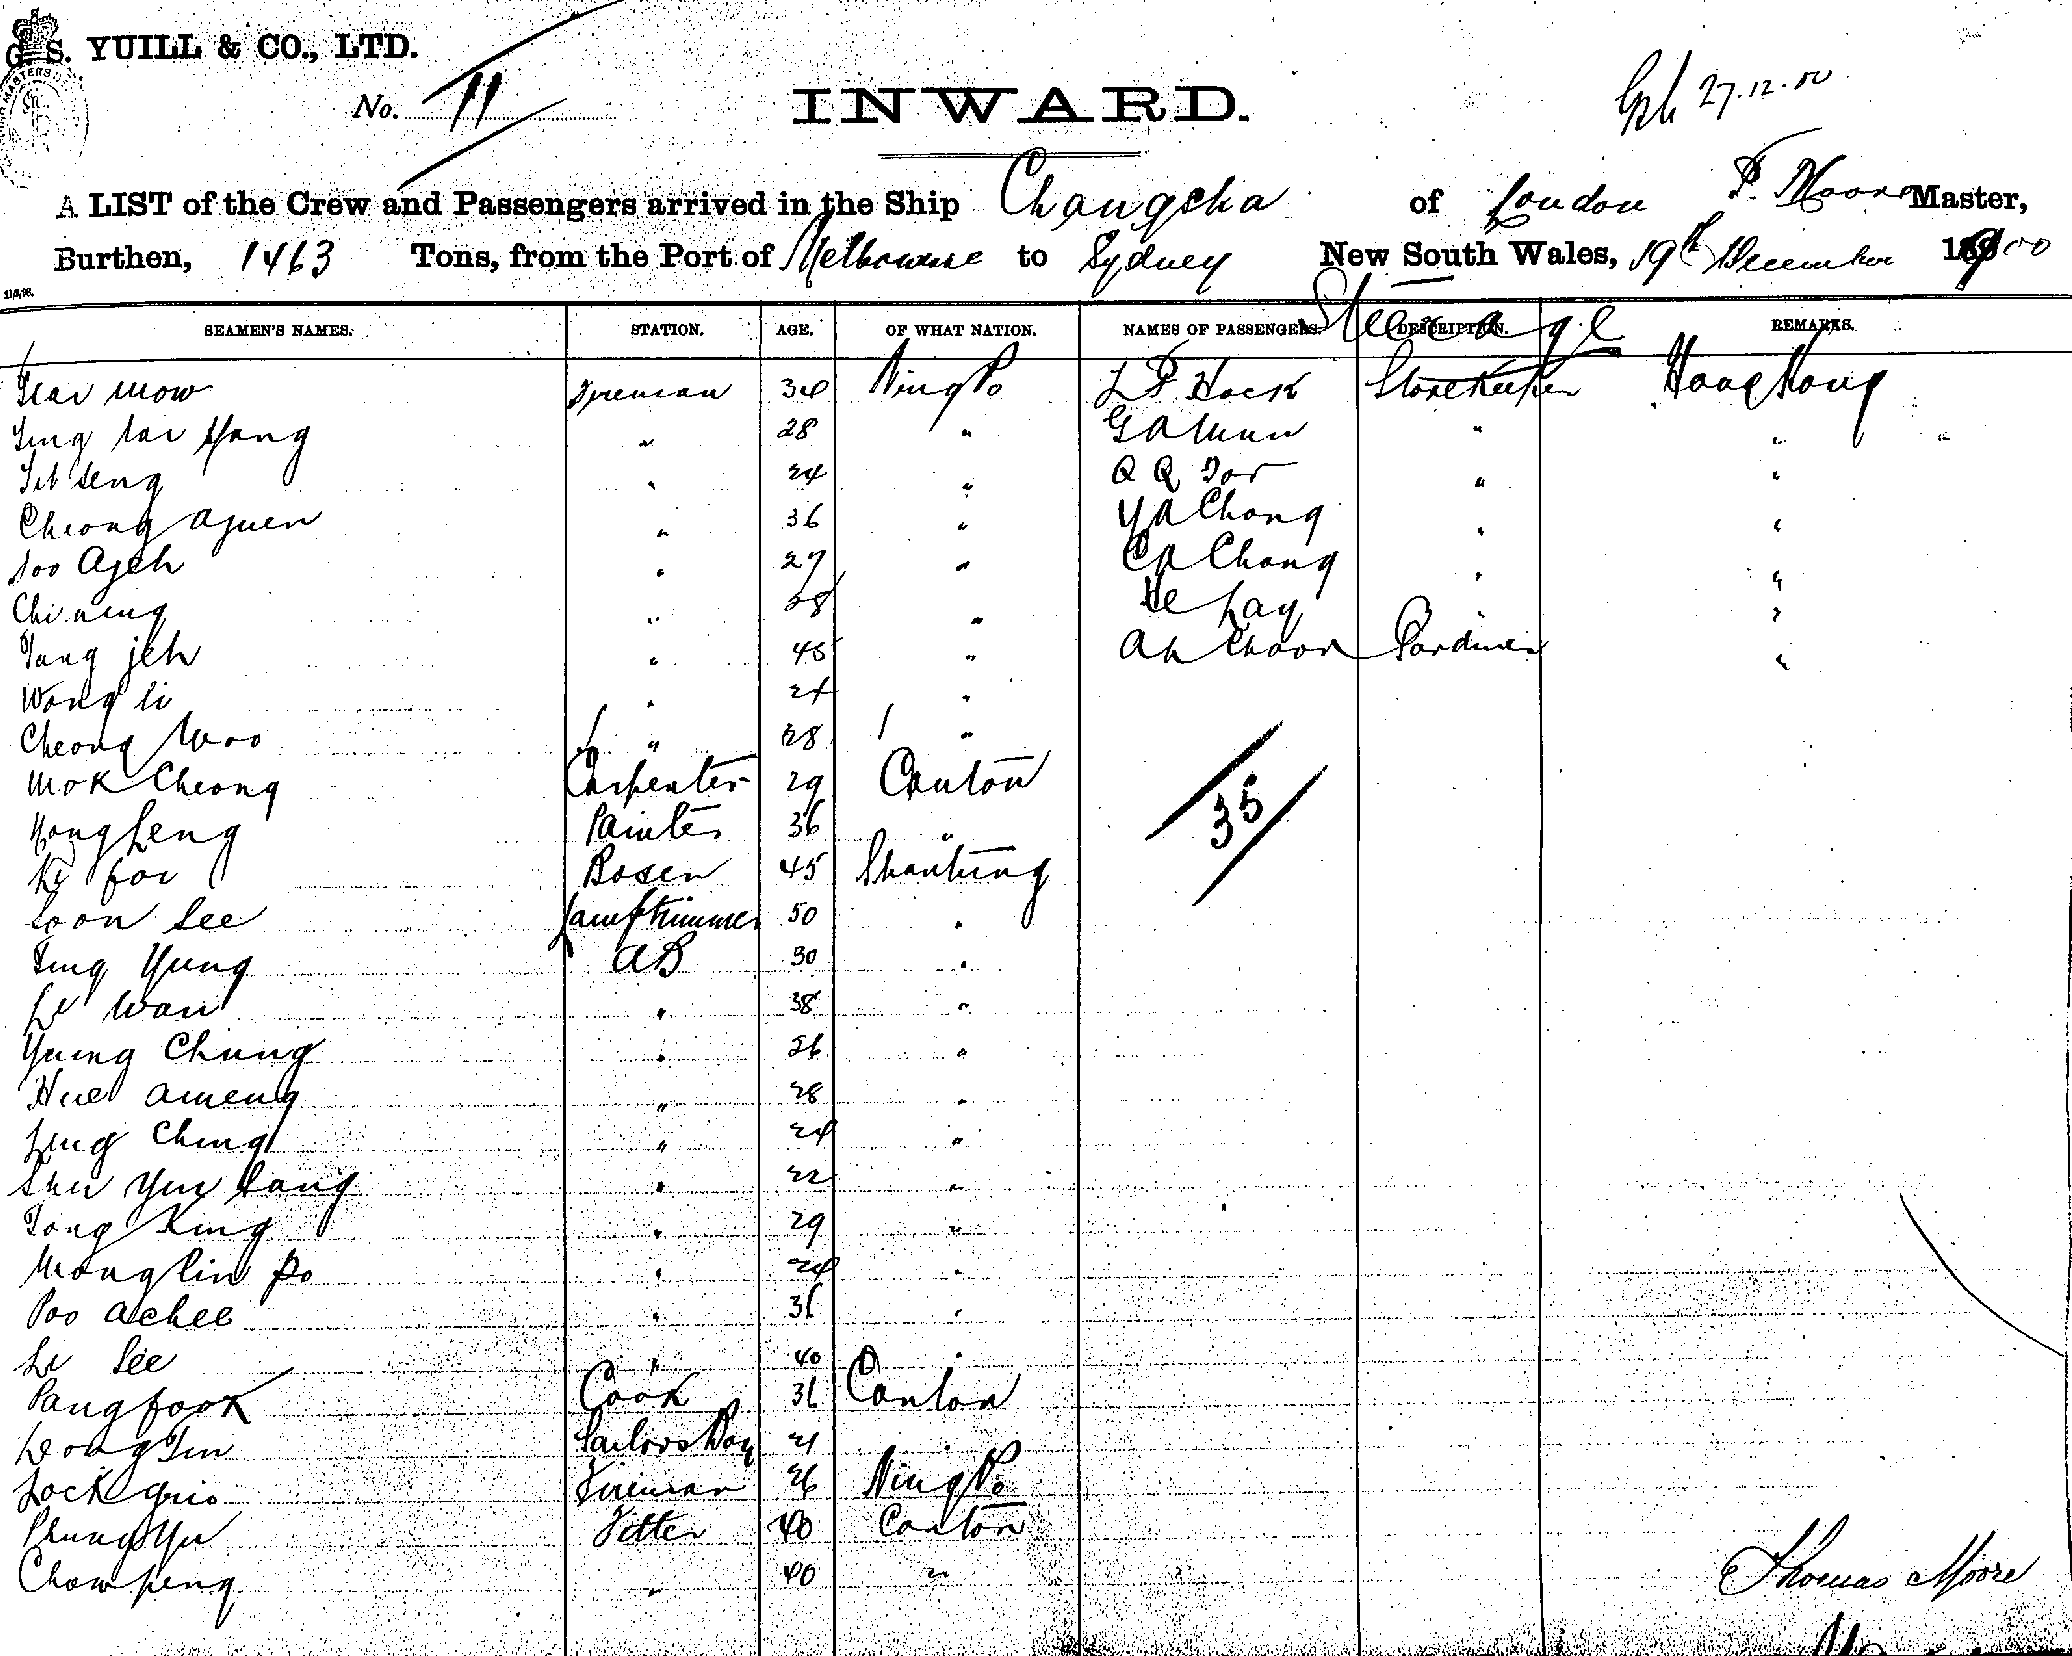 G. S. YUILL & CO., LTD.
No. 11
INWARD.
27.12.00
A LIST of the Crew and Passengers arrived in the Ship Changsha of London T. Moore Master,
Burthen, 1463 Tons, from the Port of Melbourne to Sydney New South Wales, 19th December 1900
Steerage
SEAMEN'S NAMES. STATION. AGE. OF WHAT NATION. NAMES OF PASSENGERS. DESCRIPTION. REMARKS.
Mow Fireman 34 Ning Po Hock Storekeeper Hong Kong
Ling Yang " 28 " G A Mun " "
Seng " 24 " "  "
Cheong " 36 " Y A Chong " "
Ajeh " 27 " Chong " "
Chi ning " 28 " Lay " "
Tang jeh " " Ah Choon Gardner "
Wong li " 24 "
Cheong Woo " 28 "
Mok Cheong Carpenter 29 Canton
Leng Painter 36 "
Bosen 45 Shantung
Soon See Lamptrimmer 50 "
Ting Yung AB 30 "
Le Wan " 38 "
Yung Chung " 26 "
Ameng " 28 "
Ling Ching " 24 "
Yin " 22 "
Tong King " 29 "
Po " 24 "
Poo Achee " 36 "
Le See " 40 "
Pang fook Cook 36 Canton
Leong Tin Sailors Boy 21 "
Lock Fireman 26 Ning Po
Chung Yu Fitter 40 Canton
Chow peng " 40 "
35
Thomas Moore